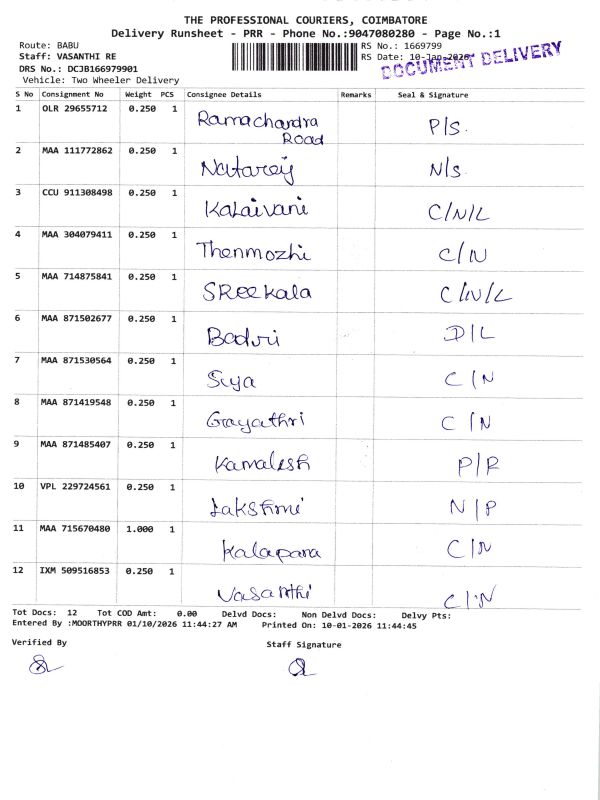 THE PROFESSIONAL COURIERS, COIMBATORE
Delivery Runsheet - PRR - Phone No.:9047080280 - Page No.:1
Route: BABU
Staff: VASANTHI RE
DRS No.: DCJB166979901
Vehicle: Two Wheeler Delivery
RS No.: 1669799
RS Date: 10-Jan-2026
DOCUMENT DELIVERY
S No Consignment No Weight PCS Consignee Details Remarks Seal & Signature
1 OLR 29655712 0.250 1 Ramachandra P/S.
Road
2 MAA 111772862 0.250 1 Nataraj N/S.
3 CCU 911308498 0.250 1 Kalaivani C/N/L
4 MAA 304079411 0.250 1 Thenmozhi C/N
5 MAA 714875841 0.250 1 SReekala C/N/L
6 MAA 871502677 0.250 1 Badri D/L
7 MAA 871530564 0.250 1 C/N
8 MAA 871419548 0.250 1 Gayathri C/N
9 MAA 871485407 0.250 1 Kamalesh P/R
10 VPL 229724561 0.250 1 Lakshmi N/P
11 MAA 715670480 1.000 1 Kalapana C/N
12 IXM 509516853 0.250 1 Vasanthi C/N
Tot Docs: 12 Tot COD Amt: 0.00 Delvd Docs: Non Delvd Docs: Delvy Pts:
Entered By :MOORTHYPRR 01/10/2026 11:44:27 AM Printed On: 10-01-2026 11:44:45
Verified By Staff Signature